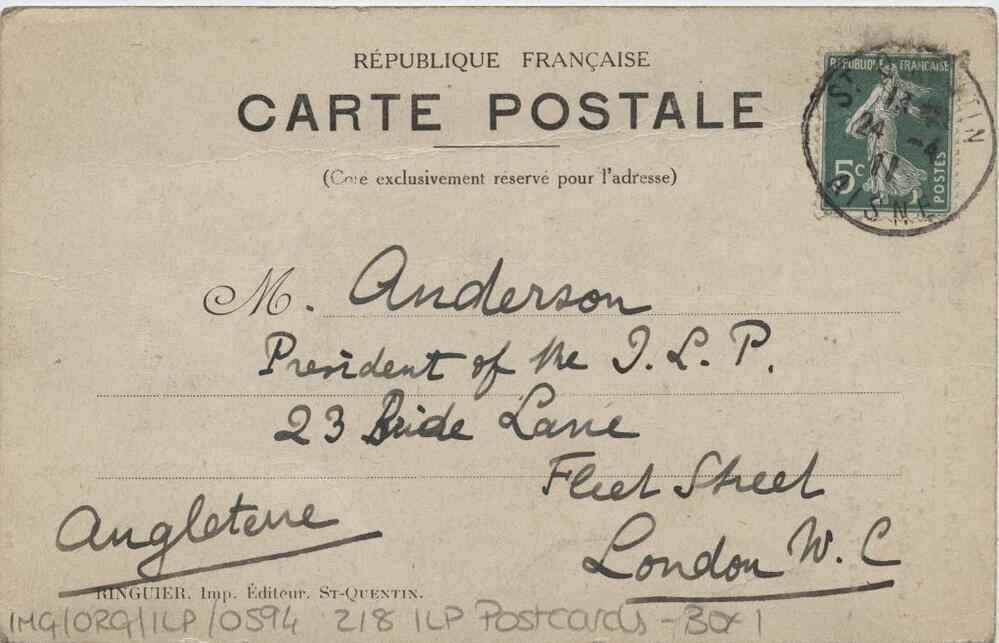 RÉPUBLIQUE FRANÇAISE
CARTE POSTALE
(Côté exclusivement réservé pour l'adresse)
RÉPUBLIQUE FRANÇAISE
5c
POSTES
13
24 -4
11
AISNE
M. Anderson
President of the I. L. P.
23 Bride Lane
Fleet Street
London W. C
Angleterre
RINGUIER. Imp. Éditeur. ST-QUENTIN.
IMG/ORG/ILP/0594 218 ILP Postcards - Box 1